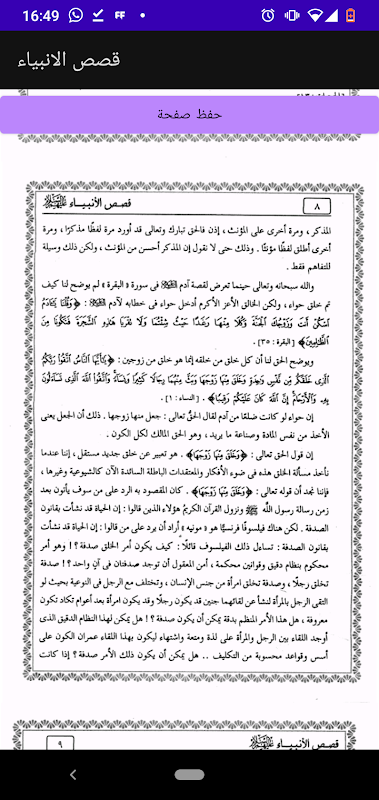 16:49
قصص الانبياء
حفظ صفحة
٨
قصص الأنبياء
المذكر ، ومرة أخرى على المؤنث ، إذن فالحق تبارك وتعالى قد أورد مرة لفظًا مذكرًا ، ومرة
أخرى أطلق لفظًا مؤنثًا . وذلك حتى لا نقول إن المذكر أحسن من المؤنث ، ولكن ذلك وسيلة
للتفاهم فقط .
والله سبحانه وتعالى حينما تعرض لقصة آدم في سورة « البقرة » لم يوضح لنا كيف
تم خلق حواء ، ولكن الخالق الأعز الأكرم أدخل حواء في خطابه لآدم : ﴿ وَقُلْنَا يَٰٓـَٔادَمُ
ٱسْكُنْ أَنتَ وَزَوْجُكَ ٱلْجَنَّةَ وَكُلَا مِنْهَا رَغَدًا حَيْثُ شِئْتُمَا وَلَا تَقْرَبَا هَٰذِهِ ٱلشَّجَرَةَ فَتَكُونَا مِنَ
ٱلظَّٰلِمِينَ ﴾ [ البقرة : ٣٥ ] .
ويوضح الحق لنا أن كل خلق من خلقه إنما هو خلق من زوجين : ﴿ يَٰٓأَيُّهَا ٱلنَّاسُ ٱتَّقُوا۟ رَبَّكُمُ
ٱلَّذِى خَلَقَكُم مِّن نَّفْسٍ وَٰحِدَةٍ وَخَلَقَ مِنْهَا زَوْجَهَا وَبَثَّ مِنْهُمَا رِجَالًا كَثِيرًا وَنِسَآءً وَٱتَّقُوا۟ ٱللَّهَ ٱلَّذِى تَسَآءَلُونَ
بِهِۦ وَٱلْأَرْحَامَ إِنَّ ٱللَّهَ كَانَ عَلَيْكُمْ رَقِيبًا ﴾ . [ النساء : ١ ] .
إن حواء لو كانت ضلعًا من آدم لقال الحق تعالى : جعل منها زوجها . ذلك أن الجعل يعنى
الأخذ من نفس المادة وصناعة ما يريد ، وهو الحق المالك لكل الكون .
إن قول الحق تعالى : ﴿ وَخَلَقَ مِنْهَا زَوْجَهَا ﴾ . هو تعبير عن خلق جديد مستقل ، إننا عندما
نأخذ مسألة الخلق هذه فى ضوء الأفكار والمعتقدات الباطلة السائدة الآن كالشيوعية وغيرها ،
فإننا نجد أن قوله تعالى : ﴿ وَخَلَقَ مِنْهَا زَوْجَهَا ﴾ . كان المقصود به الرد على من سوف يأتون بعد
زمن رسالة رسول الله ﷺ ونزول القرآن الكريم هؤلاء الذين قالوا : إن الحياة قد نشأت بقانون
الصدفة . لكن هناك فيلسوفًا فرنسيًّا هو « مونيه » أراد أن يرد على من قالوا : إن الحياة قد نشأت
بقانون الصدفة : تساءل ذلك الفيلسوف قائلًا : كيف يكون أمر الخلق صدفة ؟! وهو أمر
محكوم بنظام دقيق وقوانين محكمة ، أمن المعقول أن توجد صدفتان فى آن واحد ؟! صدفة
تخلق رجلًا ، وصدفة تخلق امرأة من جنس الإنسان ، وتختلف مع الرجل فى النوعية بحيث لو
التقى الرجل بالمرأة لنشأ عن لقائهما جنين قد يكون رجلًا وقد يكون امرأة بعد أعوام تكاد تكون
معروفة ، هل هذا الأمر المنظم بدقة يمكن أن يكون صدفة ؟! هل يمكن لهذا النظام الدقيق الذى
أوجد اللقاء بين الرجل والمرأة على لذة ومتعة واشتهاء ليكون بهذا اللقاء عمران الكون على
أسس وقواعد محسوبة من التكليف .. هل يمكن أن يكون ذلك الأمر صدفة ؟ إذا كانت
٩
قصص الأنبياء